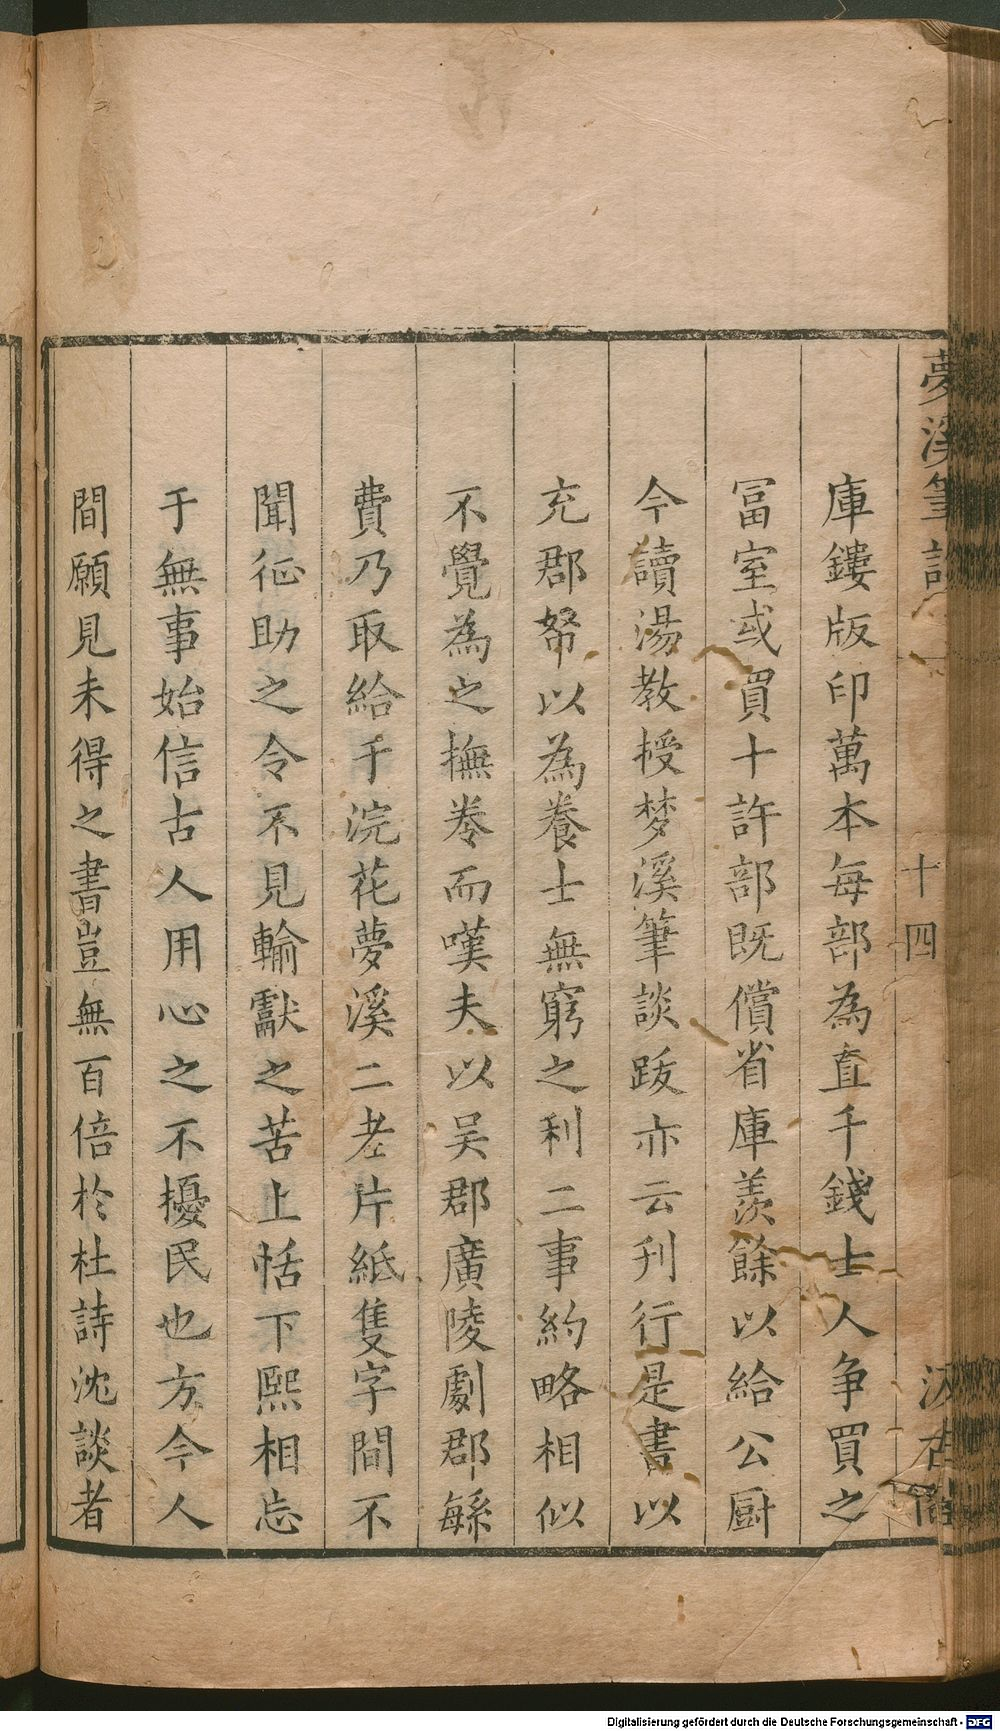 夢溪筆談
十四
汲古閣
庫鏤版印萬本每部為直千錢士人争買之
冨室或買十許部既償省庫羡餘以給公厨
今讀湯教授梦溪筆談跋亦云刋行是書以
充郡帑以為養士無窮之利二事約略相似
不覺為之撫卷而嘆夫以吴郡廣陵劇郡繇
費乃取給于浣花夢溪二老片紙隻字間不
聞征助之令不見輸獻之苦上恬下熙相忘
于無事始信古人用心之不擾民也方今人
間願見未得之書豈無百倍於杜詩沈談者
Digitalisierung gefördert durch die Deutsche Forschungsgemeinschaft - DFG